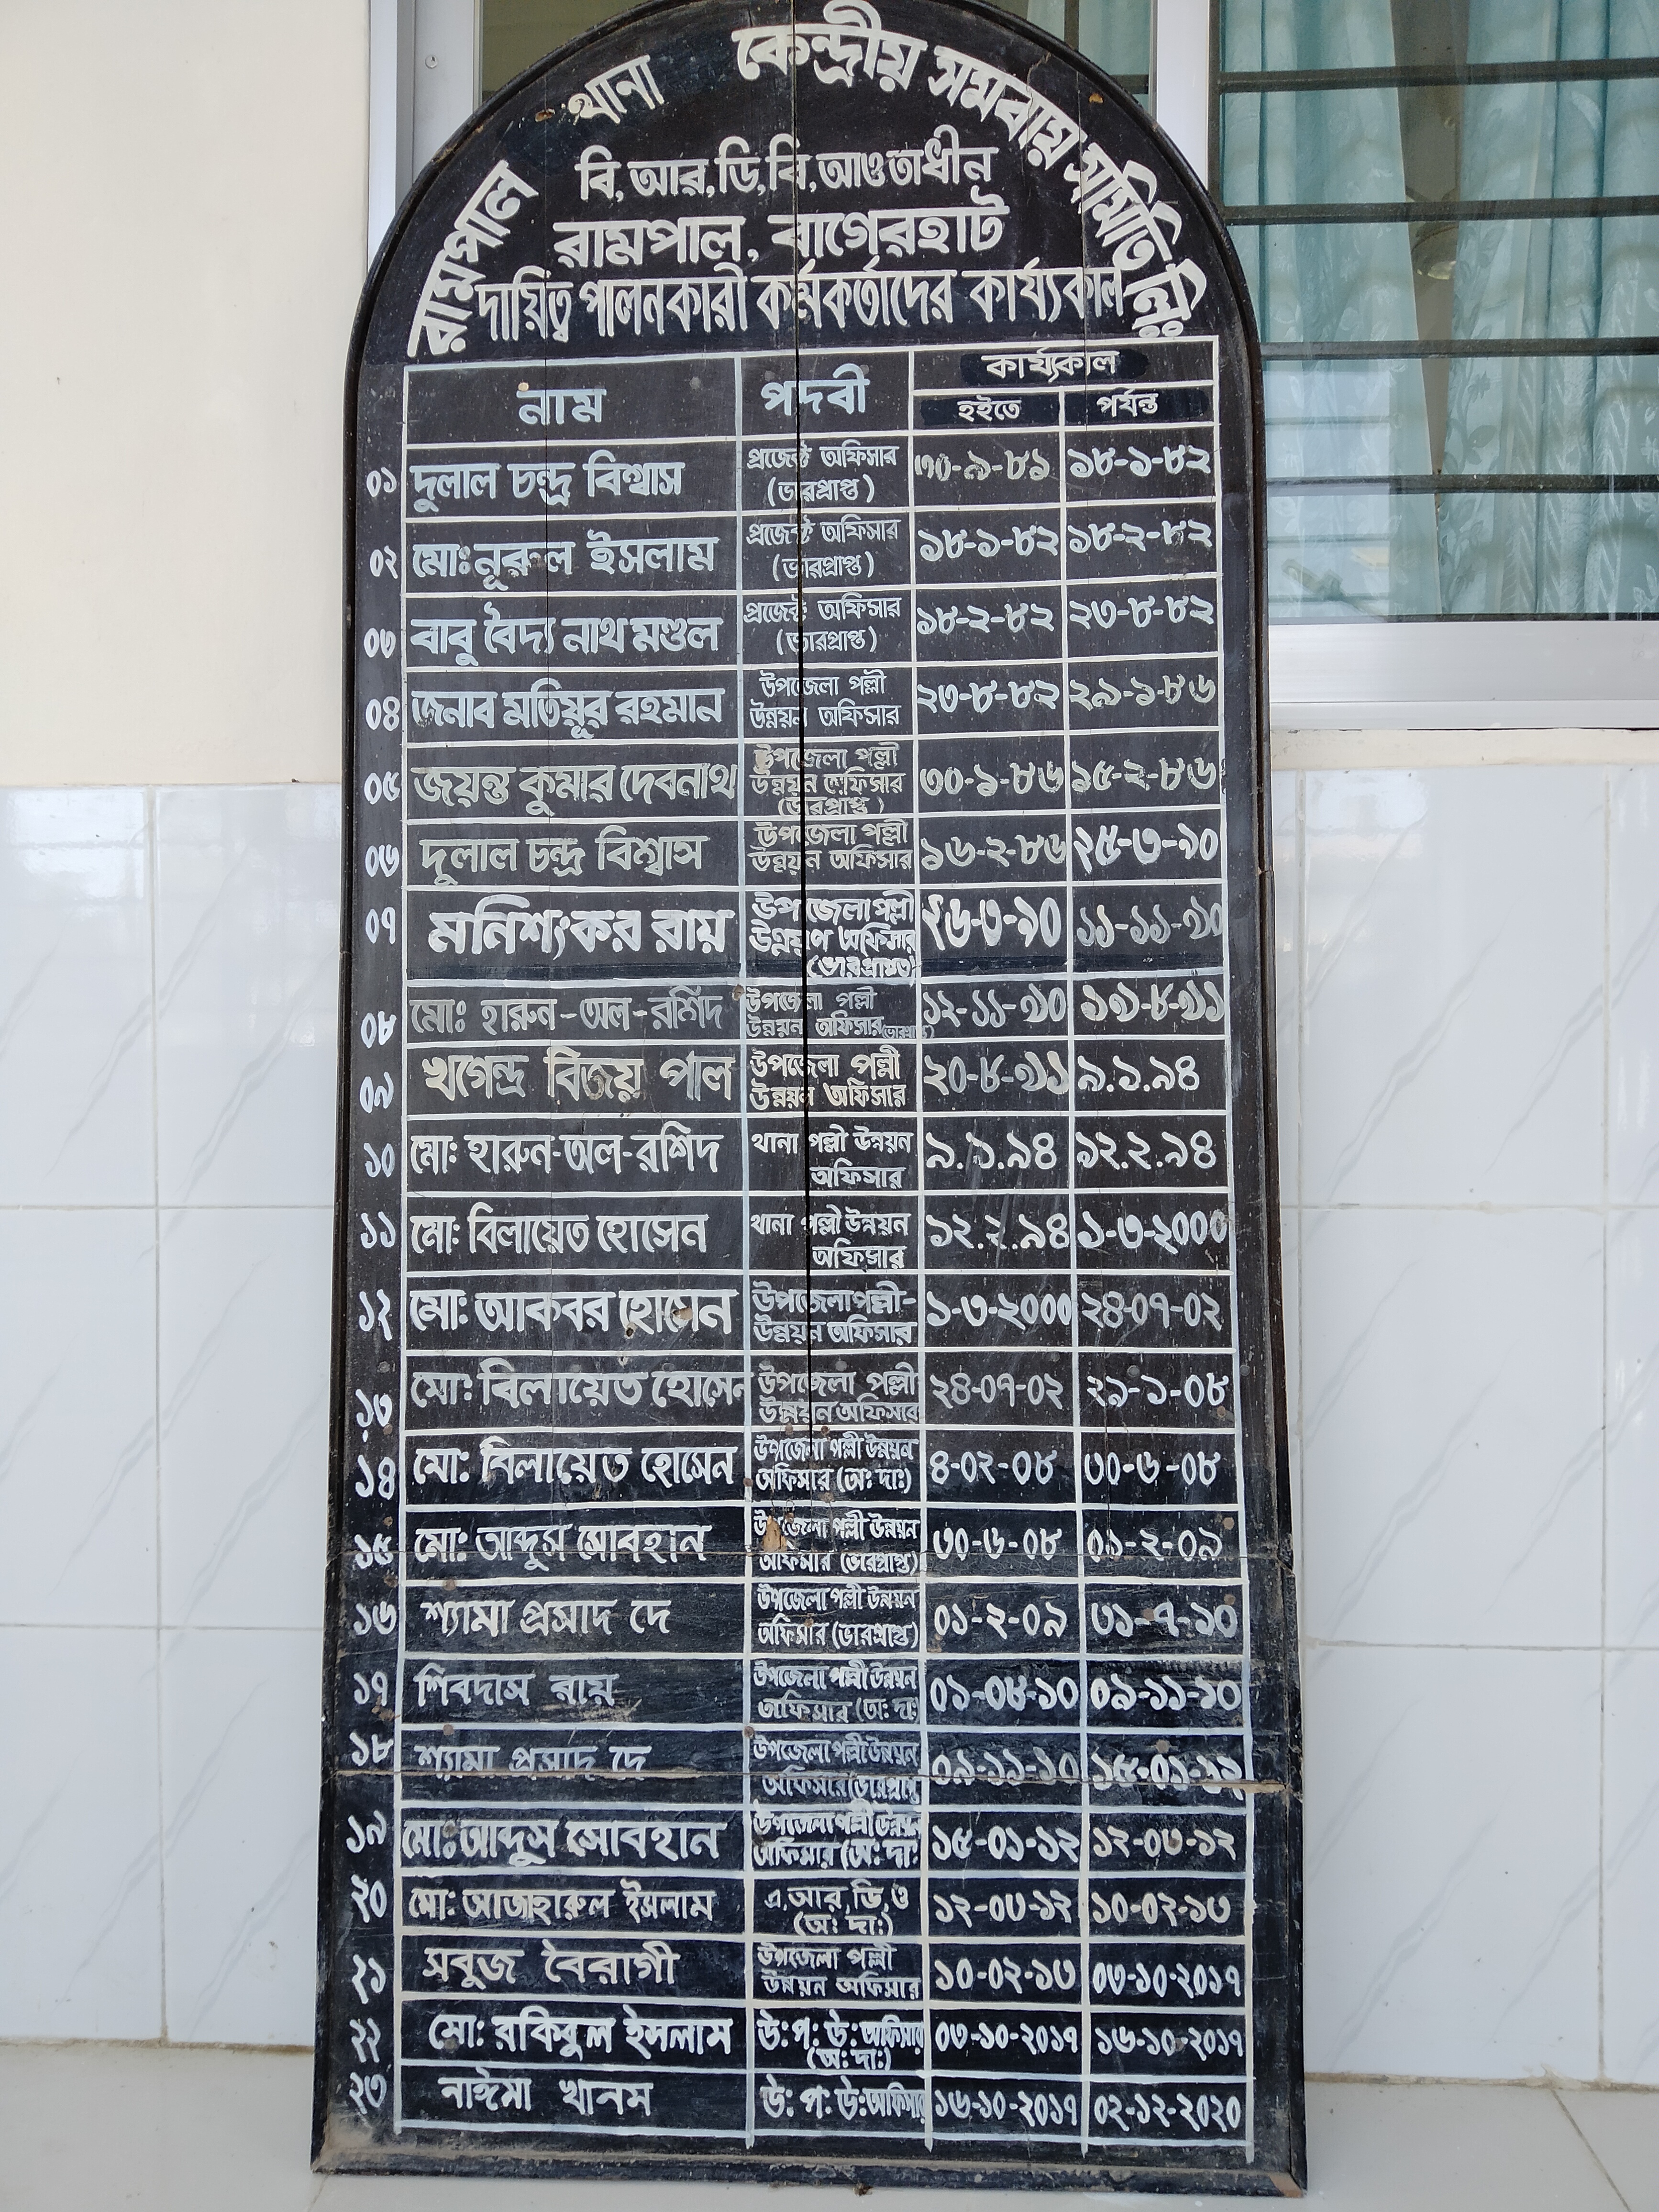 রামপাল থানা কেন্দ্রীয় সমবায় সমিতি লিঃ
বি,আর,ডি,বি,আওতাধীন
রামপাল, বাগেরহাট
দায়িত্ব পালনকারী কর্মকর্তাদের কার্য্যকাল
নাম পদবী কার্য্যকাল
হইতে পর্যন্ত
০১ দুলাল চন্দ্র বিশ্বাস প্রজেক্ট অফিসার (ভারপ্রাপ্ত) ৩০-৯-৮১ ১৮-১-৮২
০২ মোঃ নূরুল ইসলাম প্রজেক্ট অফিসার (ভারপ্রাপ্ত) ১৮-১-৮২ ১৮-২-৮২
০৩ বাবু বৈদ্য নাথ মণ্ডল প্রজেক্ট অফিসার (ভারপ্রাপ্ত) ১৮-২-৮২ ২৩-৮-৮২
০৪ জনাব মতিয়ুর রহমান উপজেলা পল্লী উন্নয়ন অফিসার ২৩-৮-৮২ ২৯-১-৮৬
০৫ জয়ন্ত কুমার দেবনাথ উপজেলা পল্লী উন্নয়ন অফিসার (ভারপ্রাপ্ত) ৩০-১-৮৬ ১৫-২-৮৬
০৬ দুলাল চন্দ্র বিশ্বাস উপজেলা পল্লী উন্নয়ন অফিসার ১৬-২-৮৬ ২৫-৩-৯০
০৭ মনিশংকর রায় উপজেলা পল্লী উন্নয়ণ অফিসার (ভারপ্রাপ্ত) ২৬-৩-৯০ ১১-১১-৯০
০৮ মোঃ হারুন-অল-রশিদ উপজেলা পল্লী উন্নয়ন অফিসার ১২-১১-৯০ ১৯-৮-৯১
০৯ খগেন্দ্র বিজয় পাল উপজেলা পল্লী উন্নয়ন অফিসার ২০-৮-৯১ ৯.১.৯৪
১০ মো: হারুন-অল-রশিদ থানা পল্লী উন্নয়ন অফিসার ৯.১.৯৪ ১২.২.৯৪
১১ মো: বিলায়েত হোসেন থানা পল্লী উন্নয়ন অফিসার ১২.২.৯৪ ১-৩-২০০০
১২ মো: আকবর হোসেন উপজেলা পল্লী- উন্নয়ন অফিসার ১-৩-২০০০ ২৪-০৭-০২
১৩ মো: বিলায়েত হোসেন উপজেলা পল্লী উন্নয়ন অফিসার ২৪-০৭-০২ ২৯-১-০৮
১৪ মো: বিলায়েত হোসেন উপজেলা পল্লী উন্নয়ন অফিসার (অ: দা:) ৪-০২-০৮ ৩০-৬-০৮
১৫ মো: আব্দুস সোবহান উপজেলা পল্লী উন্নয়ন অফিসার (ভারপ্রাপ্ত) ৩০-৬-০৮ ০১-২-০৯
১৬ শ্যামা প্রসাদ দে উপজেলা পল্লী উন্নয়ন অফিসার (ভারপ্রাপ্ত) ০১-২-০৯ ৩১-৭-১০
১৭ শিবদাস রায় উপজেলা পল্লী উন্নয়ন অফিসার (অ: দা: ০১-০৮-১০ ০৯-১১-১০
১৮ শ্যামা প্রসাদ দে উপজেলা পল্লী উন্নয়ন অফিসার (ভারপ্রাপ্ত ০৯-১১-১০ ১৫-০১-১২
১৯ মো: আব্দুস সোবহান উপজেলা পল্লী উন্নয়ন অফিসার (অ: দা: ১৫-০১-১২ ১২-০৩-১২
২০ মো: আজাহারুল ইসলাম এ,আর,ডি,ও (অ: দা:) ১২-০৩-১২ ১০-০২-১৩
২১ সবুজ বৈরাগী উপজেলা পল্লী উন্নয়ন অফিসার ১০-০২-১৩ ০৩-১০-২০১৭
২২ মো: রকিবুল ইসলাম উ: প: উ: অফিসার (অ: দা:) ০৩-১০-২০১৭ ১৬-১০-২০১৭
২৩ নাঈমা খানম উ: প: উ: অফিসার ১৬-১০-২০১৭ ০২-১২-২০২০